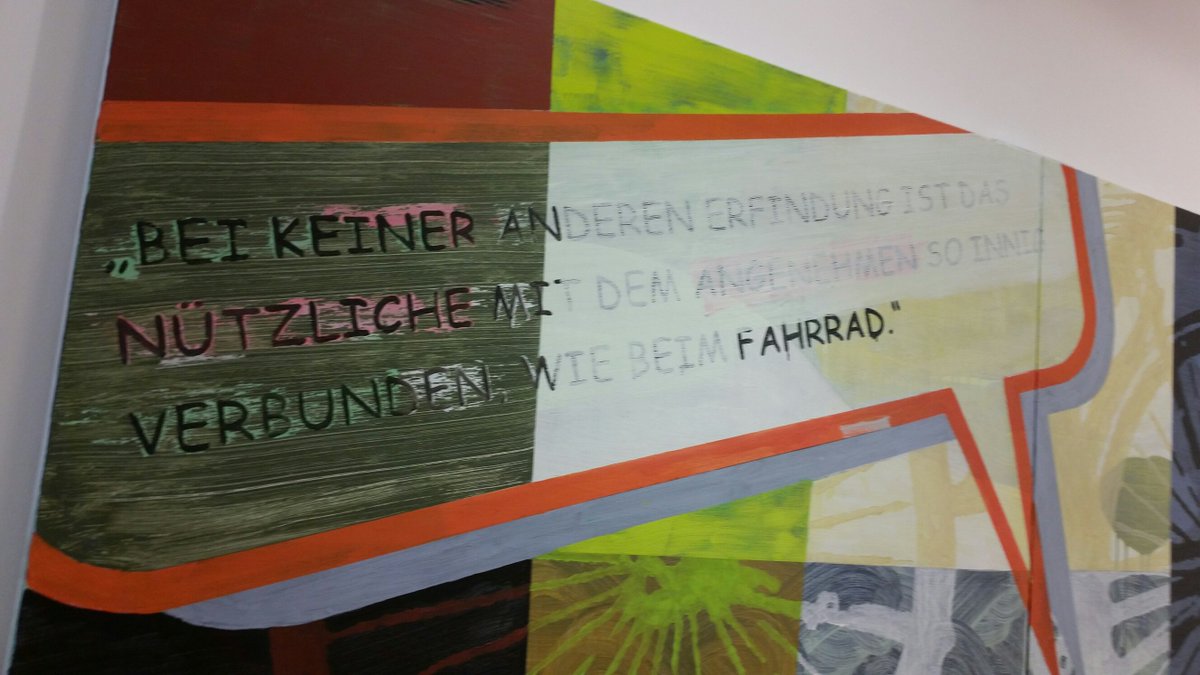 „BEI KEINER ANDEREN ERFINDUNG IST DAS
NÜTZLICHE MIT DEM ANGENEHMEN SO INNIG
VERBUNDEN, WIE BEIM FAHRRAD."